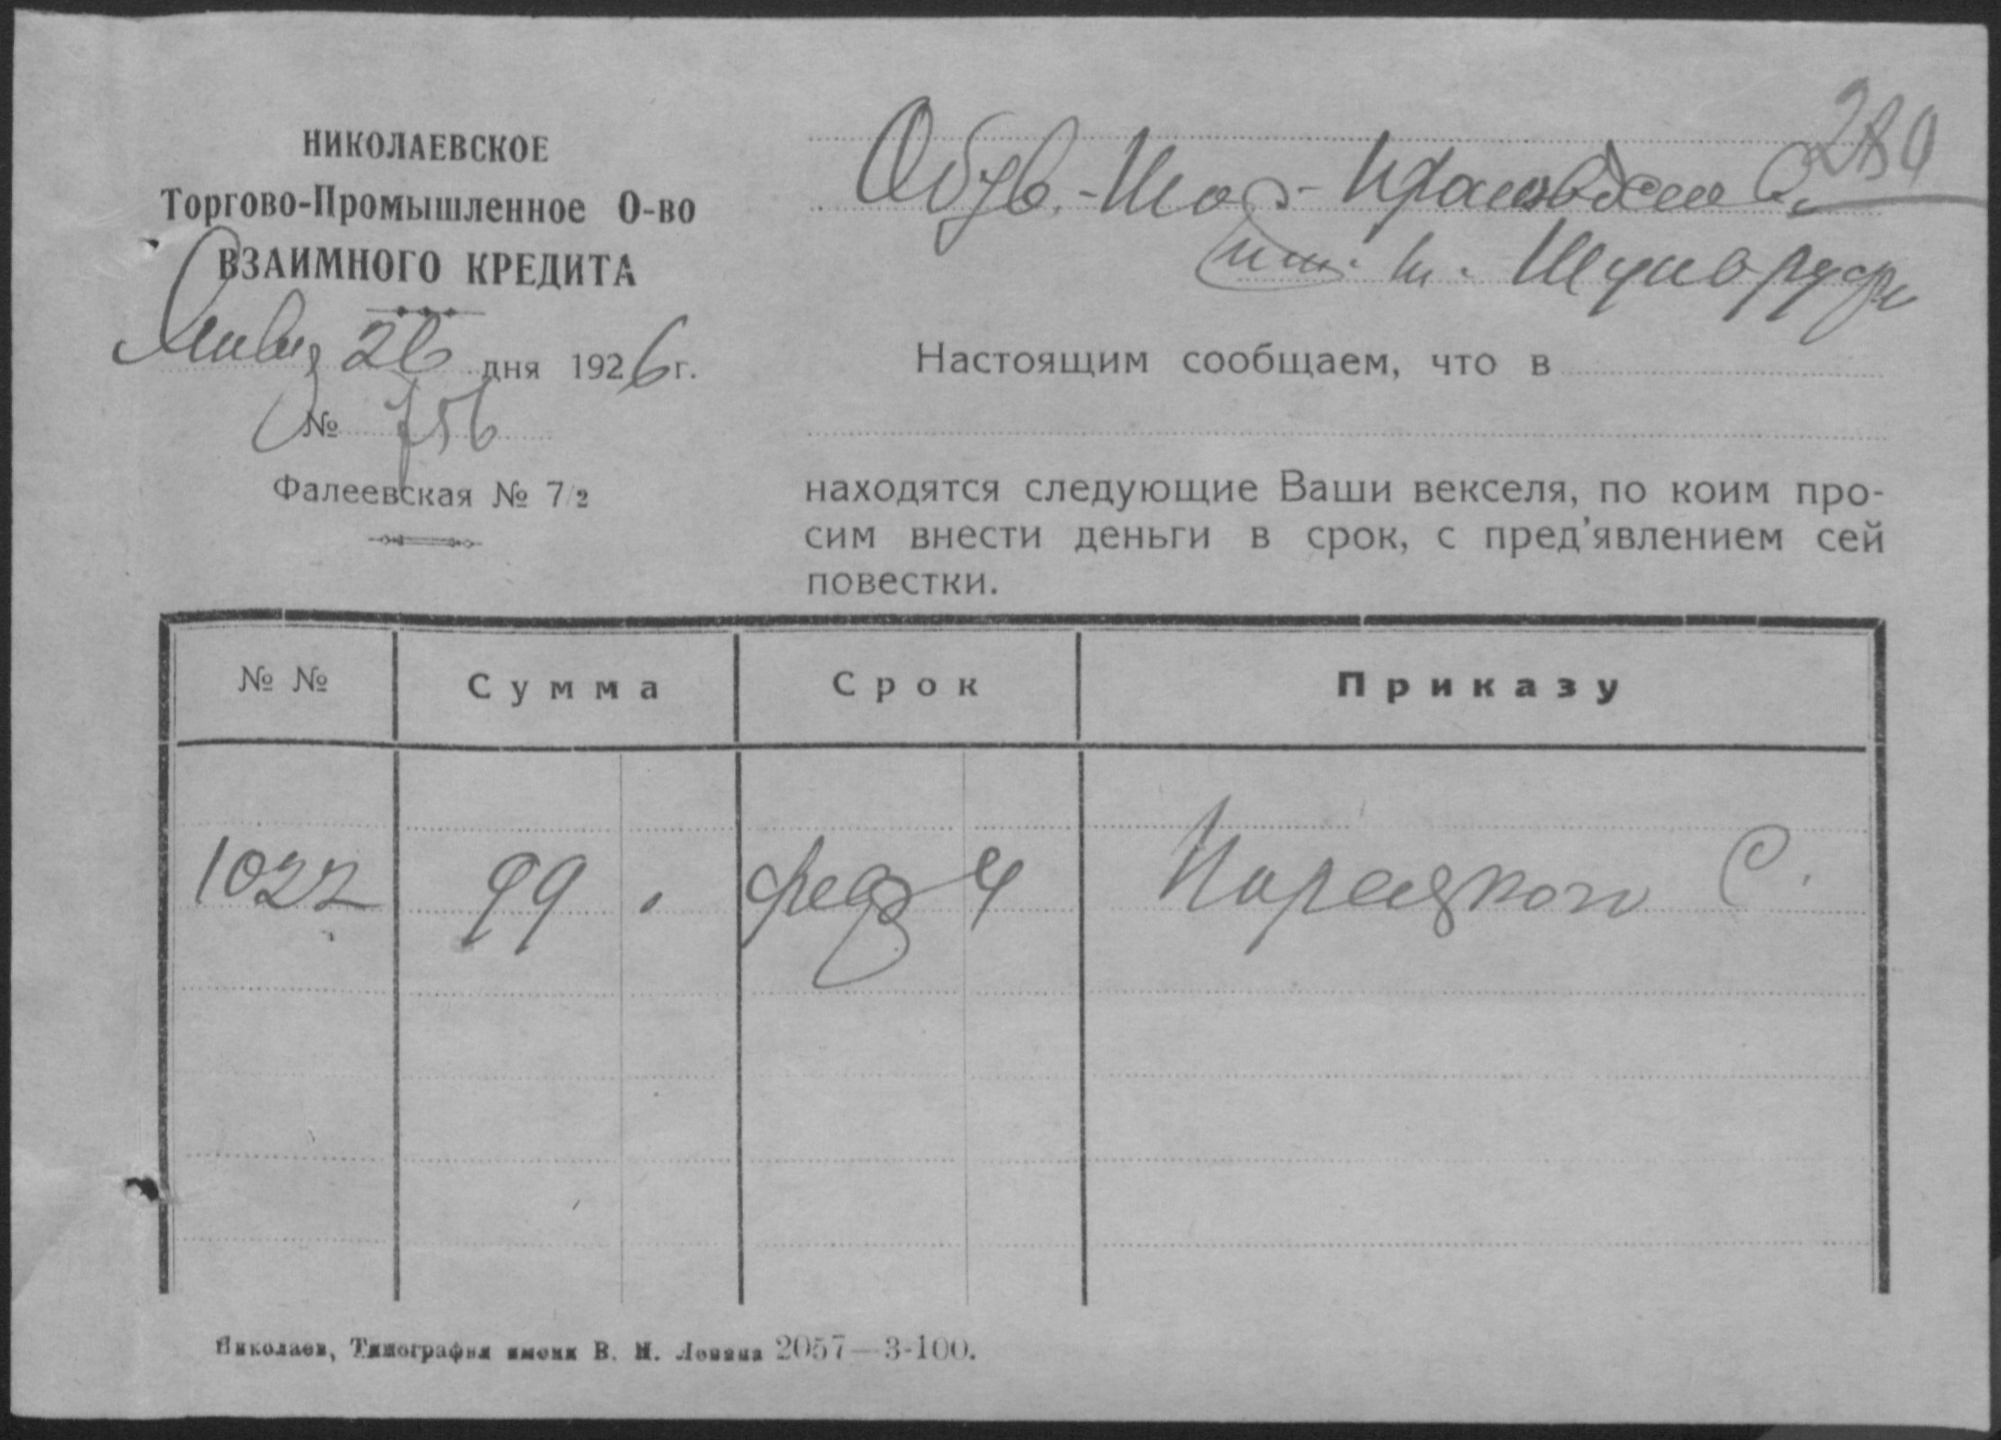 НИКОЛАЕВСКОЕ
Торгово-Промышленное О-во
ВЗАИМНОГО КРЕДИТА
Январ 26 дня 1926 г.
№ 756
Фалеевская № 7/2
280
Обув.
Настоящим сообщаем, что в
находятся следующие Ваши векселя, по коим про-
сим внести деньги в срок, с пред'явлением сей
повестки.
№ № Сумма Срок Приказу
1022 99 . 4 С.
Николаев, Типография имени В. И. Ленина 2057—3-100.